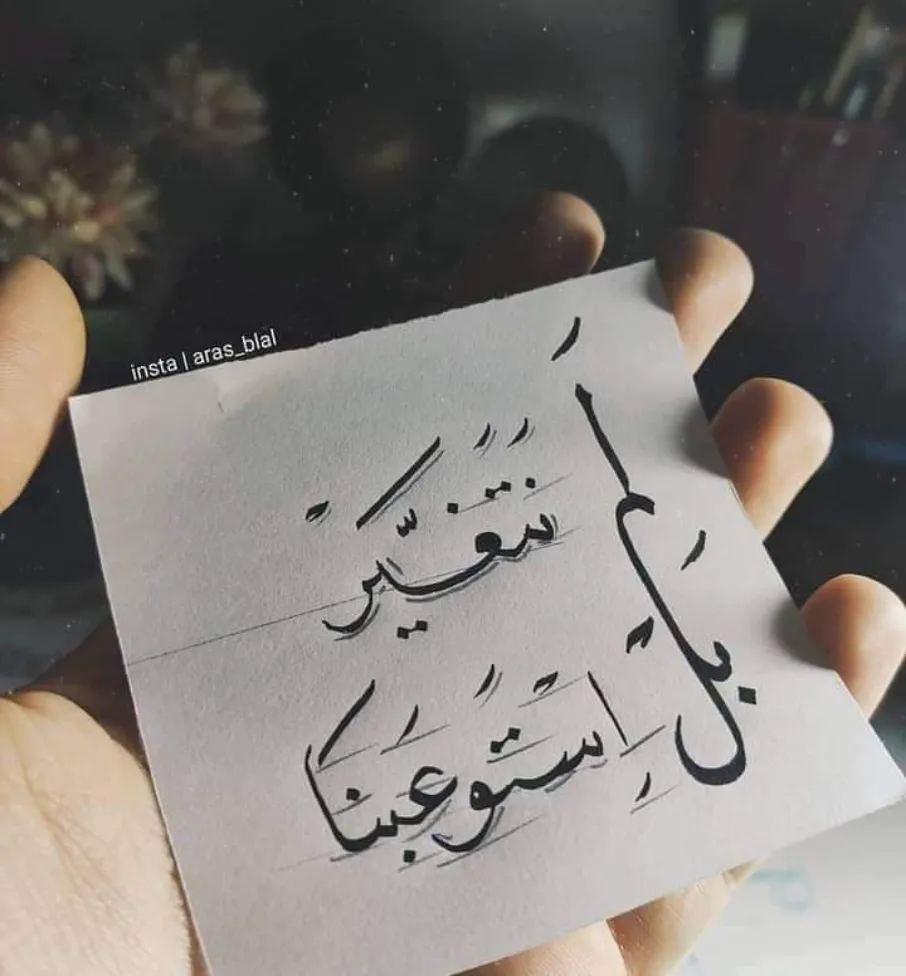 insta | aras_blal
لَم نَتَغَيَّرْ
بَلْ اِسْتَوعَبنَا